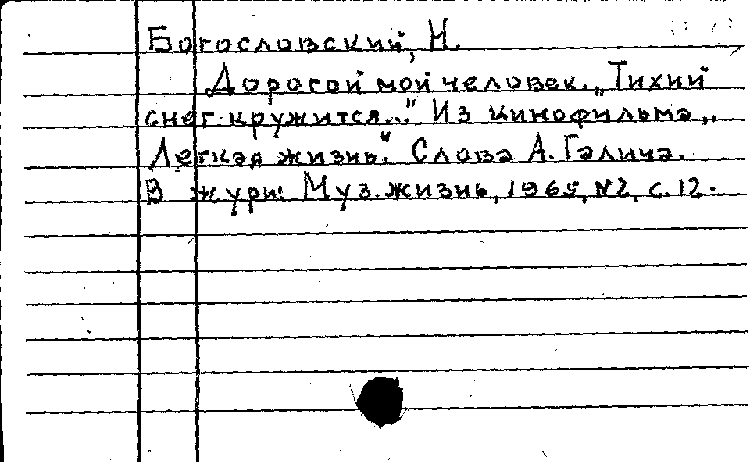 Богословский, Н.
Дорогой мой человек. „Тихий
снег кружится..." Из кинофильма „
Легкая жизнь." Слова А. Галича.
В журн: Муз. жизнь, 1965, №2, с. 12.